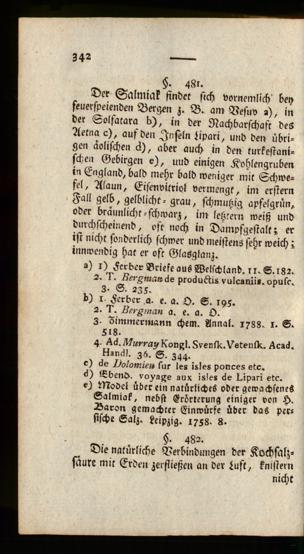 342
§. 481.
Der Salmiak findet sich vornemlich bey
feuerspeienden Bergen z. B. am Vesuv a), in
der Solfatara b), in der Nachbarschaft des
Aetna c), auf den Inseln Lipari, und den übri-
gen äolischen d), aber auch in den turkestani-
schen Gebirgen e), und einigen Kohlengruben
in England, bald mehr bald weniger mit Schwe-
fel, Alaun, Eisenvitriol vermengt, im erstern
Fall gelb, gelblicht-grau, schmutzig apfelgrün,
oder bräunlicht-schwarz, im letztern weiß und
durchscheinend, oft noch in Dampfgestalt; er
ist nicht sonderlich schwer und meistens sehr weich;
innwendig hat er oft Glasglanz.
a) 1) Ferber Briefe aus Welschland. 11. S. 182.
2. T. Bergman de productis vulcaniis. opusc.
3. S. 235.
b) 1. Ferber a. e. a. O. S. 195.
2. T. Bergman a. e. a. O.
3. Dimmermann chem. Annal. 1788. 1. S.
518.
4. Ad. Murray Kongl. Svensk. Vetensk. Acad.
Handl. 36. S. 344.
c) de Dolomieu sur les isles ponces etc.
d) Ebend. voyage aux isles de Lipari etc.
e) Model über ein natürliches oder gewachsenes
Salmiak, nebst Erörterung einiger von H.
Baron gemachter Einwürfe über das per-
sische Salz. Leipzig. 1758. 8.
§. 482.
Die natürliche Verbindungen der Kochsalz-
säure mit Erden zerfließen an der Luft, knistern
nicht